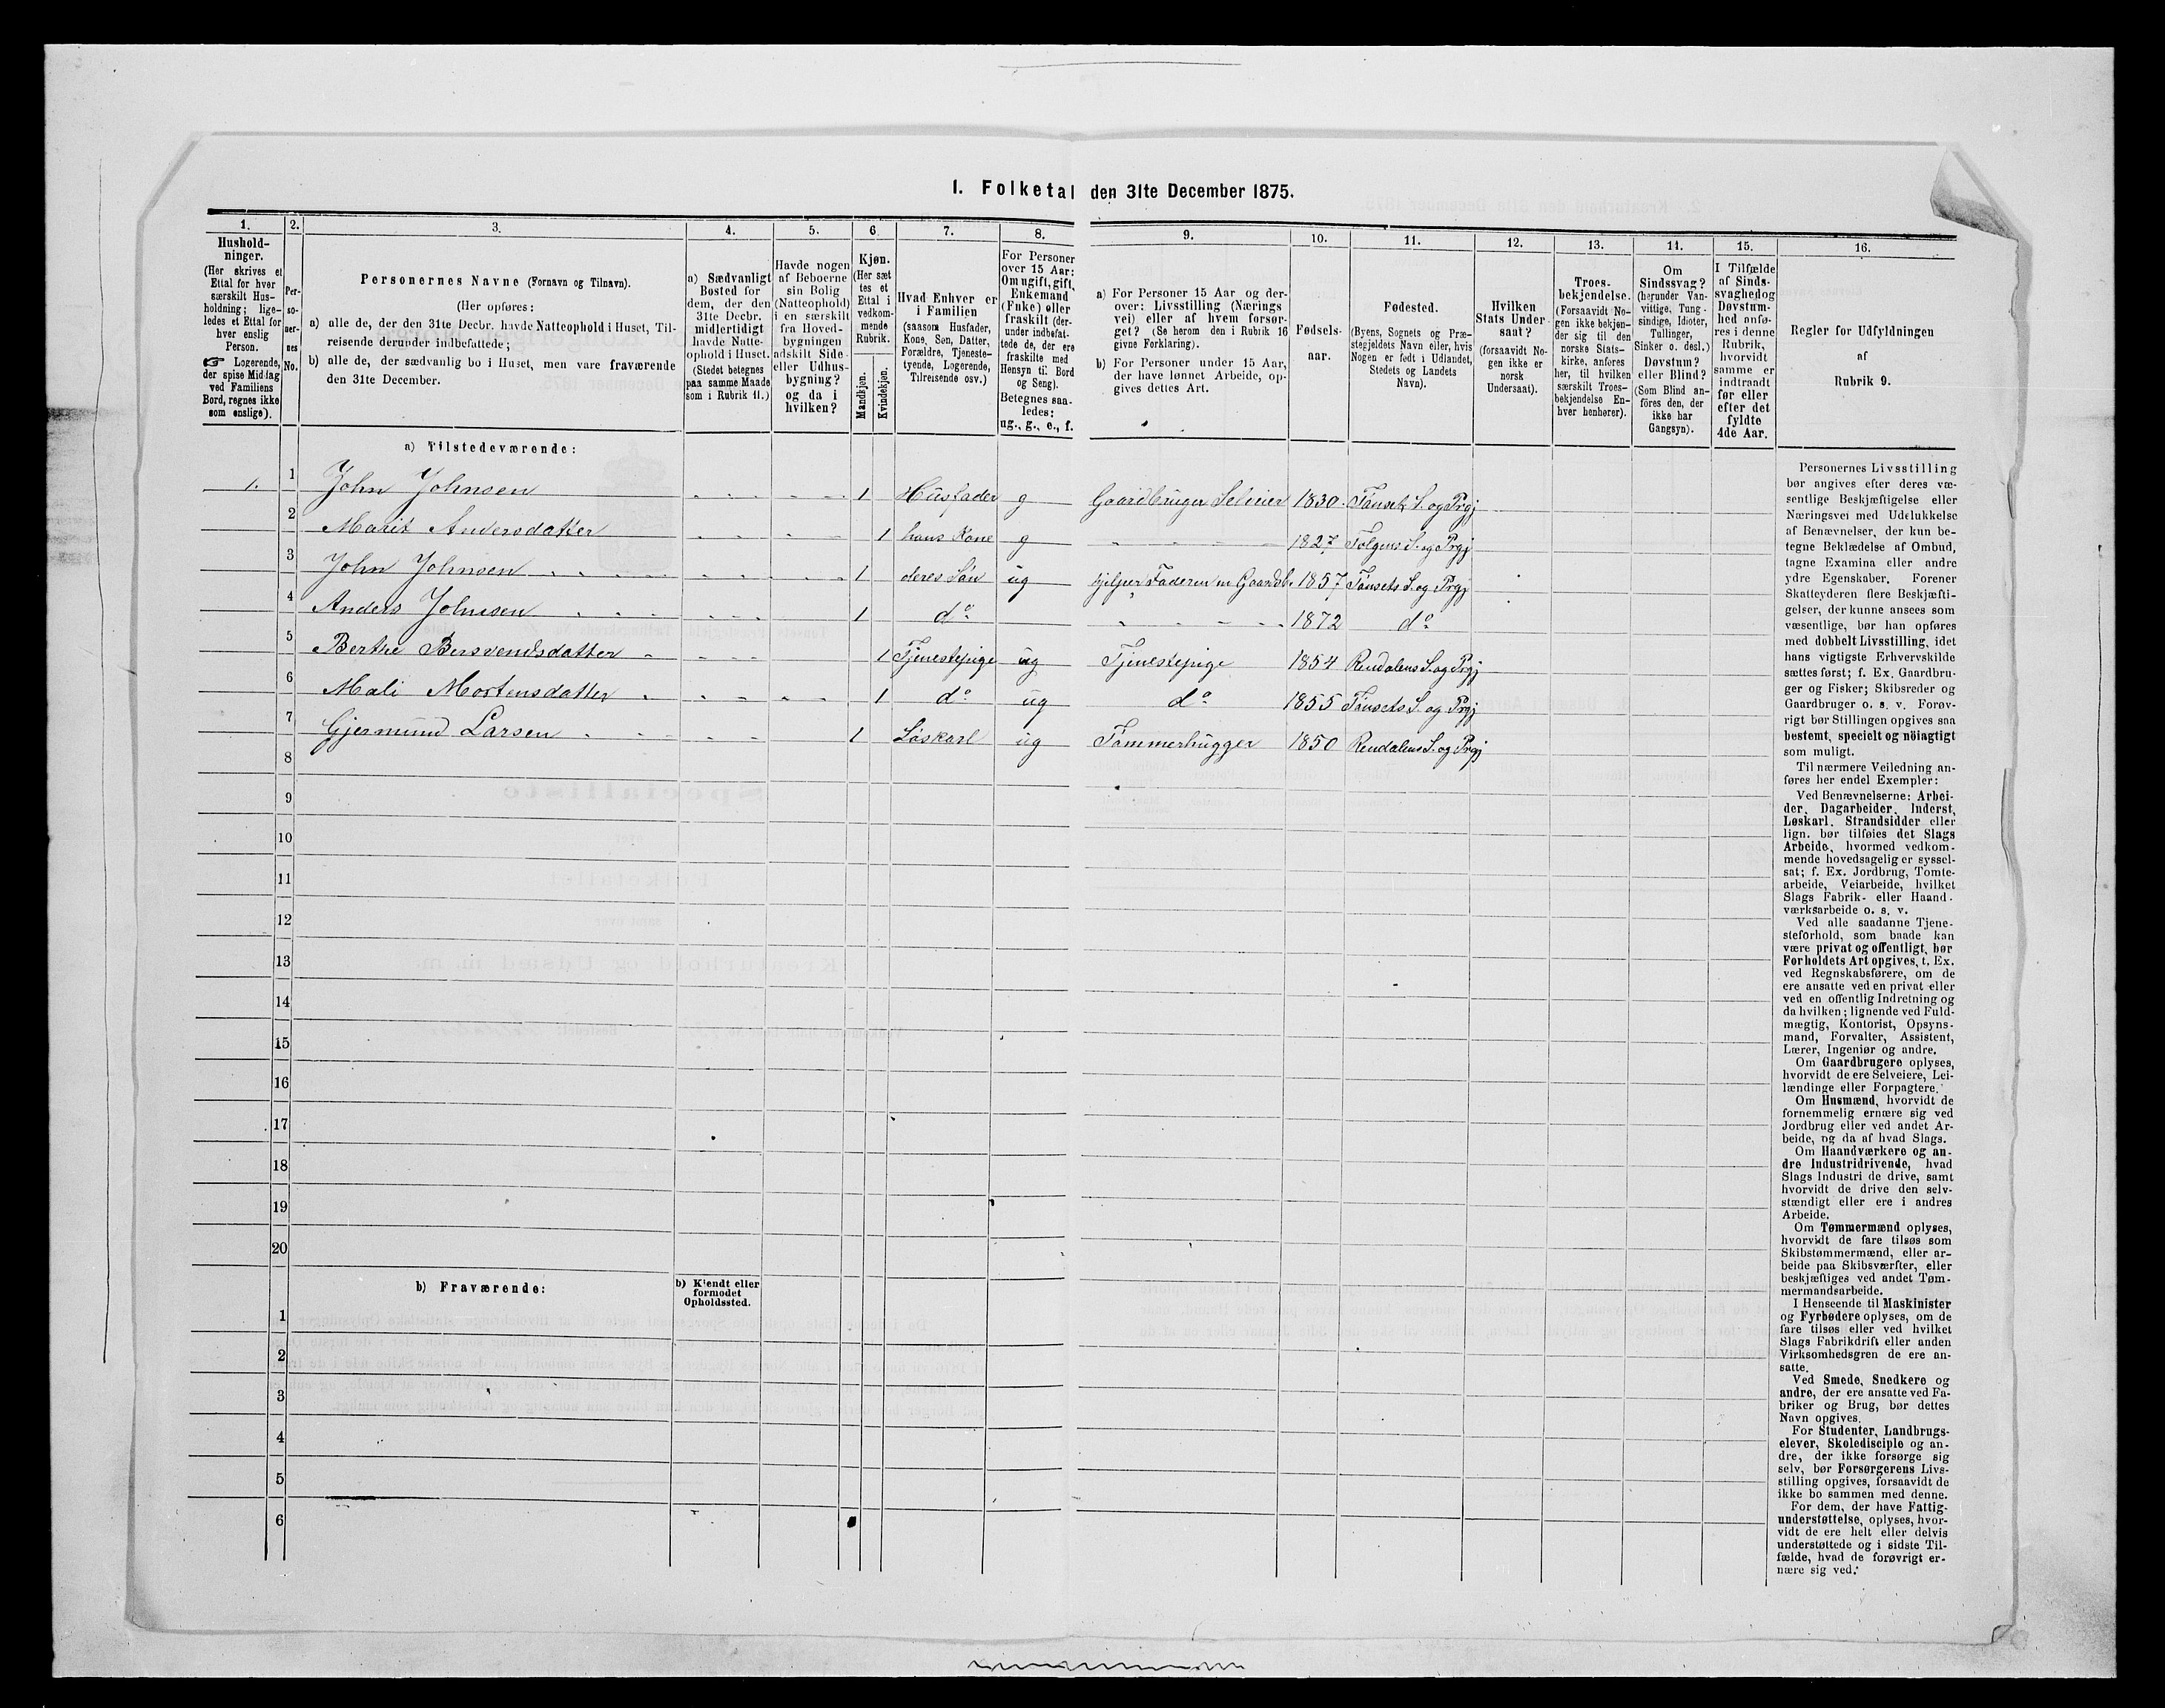 1. Folketal den 31te December 1875.
1.
2.
3.
4.
5.
6
7.
8.
9.
10.
11.
12.
13.
14.
15.
16.
Hushold-
ninger.
(Her skrives et
Ettal for hver
særskilt Hus-
holdning; lige-
ledes et Ettal for
hver enslig
Person.
☞ Logerende,
der spise Middag
ved Familiens
Bord, regnes ikke
som enslige).
Per-
so-
ner-
nes
No.
Personernes Navne (Fornavn og Tilnavn).
(Her opføres:
a) alle de, der den 31te Decbr. havde Natteophold i Huset, Til-
reisende derunder indbefattede;
b) alle de, der sædvanlig bo i Huset, men vare fraværende
den 31te December.
a) Sædvanligt
Bosted for
dem, der den
31te Decbr.
midlertidigt
havde Natte-
ophold i Huset.
(Stedet betegnes
paa samme Maade
som i Rubrik 11.)
Havde nogen
af Beboerne
sin Bolig
(Natteophold)
i en særskilt
fra Hoved-
bygningen
adskilt Side-
eller Udhus-
bygning?
og da i
hvilken?
Kjøn.
(Her sæt
tes et
Ettal i
vedkom-
mende
Rubrik.
Mandkjøn.
Kvindekjøn.
Hvad Enhver er
i Familien
(saasom Husfader,
Kone, Søn, Datter,
Forældre, Tjeneste-
tyende, Logerende,
Tilreisende osv.)
For Personer
over 15 Aar:
Om ugift, gift,
Enkemand
(Enke) eller
fraskilt (der-
under indbefat-
tede de, der ere
fraskilte med
Hensyn til Bord
og Seng).
Betegnes saa-
ledes:
ug., g., e., f.
a) For Personer 15 Aar og der-
over: Livsstilling (Nærings
vei) eller af hvem forsør-
get? (Se herom den i Rubrik 16
givne Forklaring).
b) For Personer under 15 Aar,
der have lønnet Arbeide, op-
gives dettes Art.
Fødsels-
aar.
Fødested.
(Byens, Sognets og Præ-
stegjeldets Navn eller, hvis
Nogen er født i Udlandet,
Stedets og Landets
Navn).
Hvilken
Stats Under-
saat?
(forsaavidt No-
gen ikke er
norsk
Undersaat).
Troes-
bekjendelse.
(Forsaavidt No-
gen ikke bekjen-
der sig til den
norske Stats-
kirke, anføres
her, til hvilken
særskilt Troes-
bekjendelse En-
hver henhører).
Om
Sindssvag?
(herunder Van-
vittige, Tung-
sindige, Idioter,
Tullinger,
Sinker o. desl.)
Døvstum?
eller Blind?
(Som Blind an-
föres den, der
ikke har
Gangsyn).
I Tilfælde
af Sinds-
svaghed og
Døvstum-
hed anfø-
res i denne
Rubrik,
hvorvidt
samme er
indtraadt
før eller
efter det
fyldte
4de Aar.
Regler for Udfyldningen
af
Rubrik 9.
a) Tilstedeværende:
1. 1 John Johnsen 1 Husfader g Gaardbruger Seleier 1830. Tønsets S. og Prgj
2 Marit Andersdatter 1 hans Kone g 1827 Tolgens S. og Prgj
3 John Johnsen 1 deres Søn ug hjelper Faderen m Gaardsb. 1857 Tønsets S. og Prgj
4 Anders Johnsen 1 do 1872 do
5 Berthe Bersvendsdatter 1 Tjenestepige ug Tjenestepige 1854 Rendalens S. og Prgj
6 Mali Mortensdatter 1 do ug do 1855 Tønsets S. og Prgj
7 Gjermund Larsen 1 Løskarl ug Tømmerhugger 1850 Rendalens S. og Prgj
8
9
10
11
12
13
14
15
16
17
18
19
20
b) Fraværende:
b) Kjendt eller
formodet
Opholdssted.
1
2
3
4
5
6
Personernes Livsstilling
bør angives efter deres væ-
sentlige Beskjæftigelse eller
Næringsvei med Udelukkelse
af Benævnelser, der kun be-
tegne Beklædelse af Ombud,
tagne Examina eller andre
ydre Egenskaber. Forener
Skatteyderen flere Beskjæfti-
gelser, der kunne ansees som
væsentlige, bør han opføres
med dobbelt Livsstilling, idet
hans vigtigste Erhvervskilde
sættes først; f. Ex. Gaardbru-
ger og Fisker; Skibsreder og
Gaardbruger o. s. v. Forøv-
rigt bør Stillingen opgives saa
bestemt, specielt og nöiagtigt
som muligt.
Til nærmere Veiledning an-
føres her endel Exempler:
Ved Benævnelserne: Arbei-
der, Dagarbeider, Inderst,
Løskarl, Strandsidder eller
lign. bør tilføies det Slags
Arbeide, hvormed vedkom-
mende hovedsagelig er syssel-
sat; f. Ex. Jordbrug, Tomte-
arbeide, Veiarbeide, hvilket
Slags Fabrik- eller Haand-
værksarbeide o. s. v.
Ved alle saadanne Tjene-
steforhold, som baade kan
være privat og offentligt, bør
Forholdets Art opgives, t. Ex.
ved Regnskabsførere, om de
ere ansatte ved en privat eller
ved en offentlig Indretning og
da hvilken; lignende ved Fuld-
mægtig, Kontorist, Opsyns-
mand, Forvalter, Assistent,
Lærer, Ingeniør og andre.
Om Gaardbrugere oplyses,
hvorvidt de ere Selveiere, Lei-
lændinge eller Forpagtere.
Om Husmænd, hvorvidt de
fornemmelig ernære sig ved
Jordbrug eller ved andet Ar-
beide, og da af hvad Slags.
Om Haandværkere og an-
dre Industridrivende, hvad
Slags Industri de drive, samt
hvorvidt de drive den selv-
stændigt eller ere i andres
Arbeide.
Om Tømmermænd oplyses,
hvorvidt de fare tilsøs som
Skibstømmermænd, eller ar-
beide paa Skibsværfter, eller
beskjæftiges ved andet Tøm-
mermandsarbeide.
I Henseende til Maskinister
og Fyrbødere oplyses, om de
fare tilsøs eller ved hvilket
Slags Fabrikdrift eller anden
Virksomhedsgren de ere an-
satte.
Ved Smede, Snedkere og
andre, der ere ansatte ved Fa-
briker og Brug, bør dettes
Navn opgives.
For Studenter, Landbrugs-
elever, Skoledisciple og an-
dre, der ikke forsørge sig
selv, bør Forsørgerens Livs-
stilling opgives, forsaavidt de
ikke bo sammen med denne.
For dem, der have Fattig-
understøttelse, oplyses, hvor-
vidt de ere helt eller delvis
understøttede og i sidste Til-
fælde, hvad de forøvrigt er-
nære sig ved.